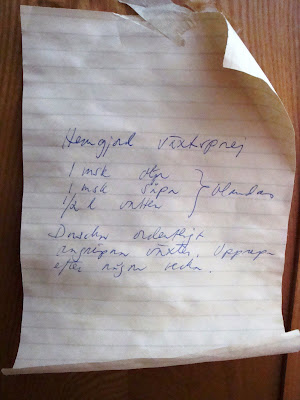 Hemgjord växtsprej
1 msk olja
1 msk såpa } blandas
1/2 l vatten
Duscha ordentligt
angripna växter. Upprepa
efter någon vecka.